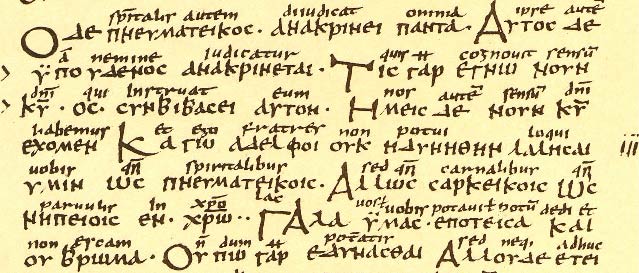 spiritalis autem diiudicat omnia ipse autē
Ο ΔΕ ΠΝΕΥΜΑΤΕΙΚΟC · ΑΝΑΚΡΙΝΕΙ ΠΑΝΤΑ · ΑΥΤΟC ΔΕ
a nemine iudicatur quis ħ cognovit sensū
ΫΠΟΥΔΕΝΟC ΑΝΑΚΡΙΝΕΤΑΙ · ΤΙC ΓΑΡ ΕΓΝΩ ΝΟΥΝ
dn̄i qui instruat eum nos autē sensū dn̄i
Κ̅Υ̅ · ΟC · CΥΝΒΙΒΑCΕΙ ΑΥΤΟΝ · ΗΜΕΙC ΔΕ ΝΟΥΝ Κ̅Υ̅
habemus et ego fratres non potui loqui
ΕΧΟΜΕΝ ΚΑΓΩ ΑΔΕΛΦΟΙ ΟΥΚ ΗΔΥΝΗΘΗΝ ΛΑΛΗCΑΙ iii
vobis qn̄ spiritalibus sed qn̄ carnalibus qn̄
ΥΜΙΝ ΩC ΠΝΕΥΜΑΤΕΙΚΟΙC · ΑΛΛΩC CΑΡΚΕΙΚΟΙC ΩC
parvulis in xp̄o lac vos ł vobis potavi ł potū dedi et
ΝΗΠΕΙΟΙC ΕΝ · Χ̅Ρ̅Ω̅ · · ΓΑΛΑ ΫΜΑC · ΕΠΟΤΕΙCΑ ΚΑΙ
non escam n̄ dum ħ potatis sed neq; adhuc
ΟΥ ΒΡΩΜΑ · ΟΥΠΩ ΓΑΡ ΕΔΥΝΑCΘΑΙ ΑΛΛΟΥΔΕ ΕΤΕΙ